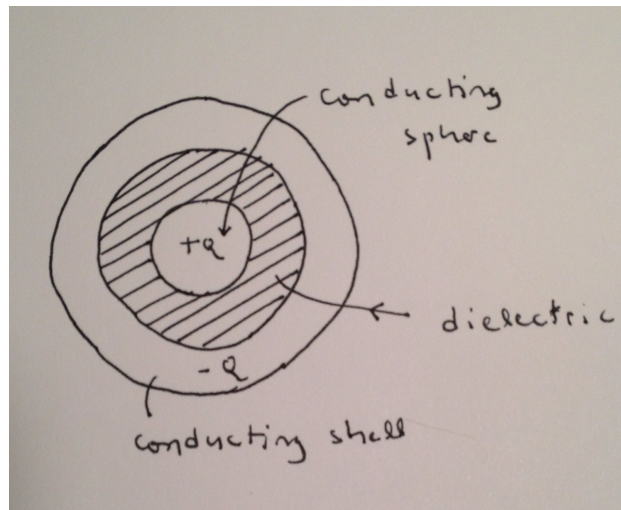 conducting
sphere
+Q
dielectric
- Q
conducting shell